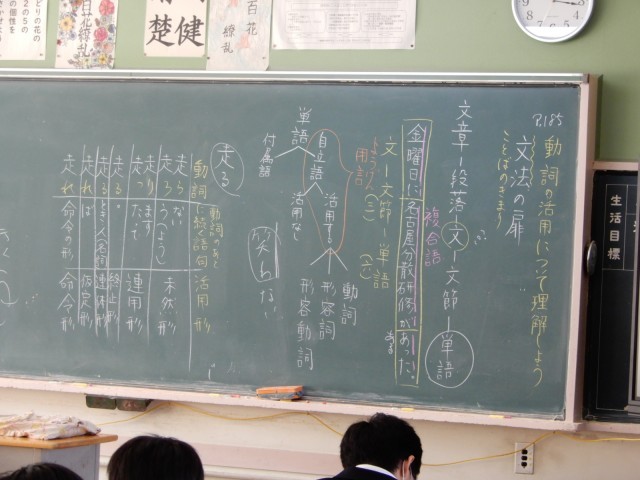 P.185
動詞の活用について理解しよう
文法の扉
ことばのきまり
文章ー段落ー文ー文節ー単語
複合語
金曜日に名古屋分散研修があった。
ある
文ー文節ー単語
用言
単語
自立語
付属語
活用する
活用なし
動詞
形容詞
形容動詞
笑わない
走る
動詞
動詞のあと
続語句
活用形
走ら
ない
う(よう)
未然形
走り
ます
走っ
た・て
連用形
走る
。
終止形
走る
とき、人(名詞)
連体形
走れ
ば
仮定形
走れ
命令の形
命令形
生活目標
健
楚
百花繚乱